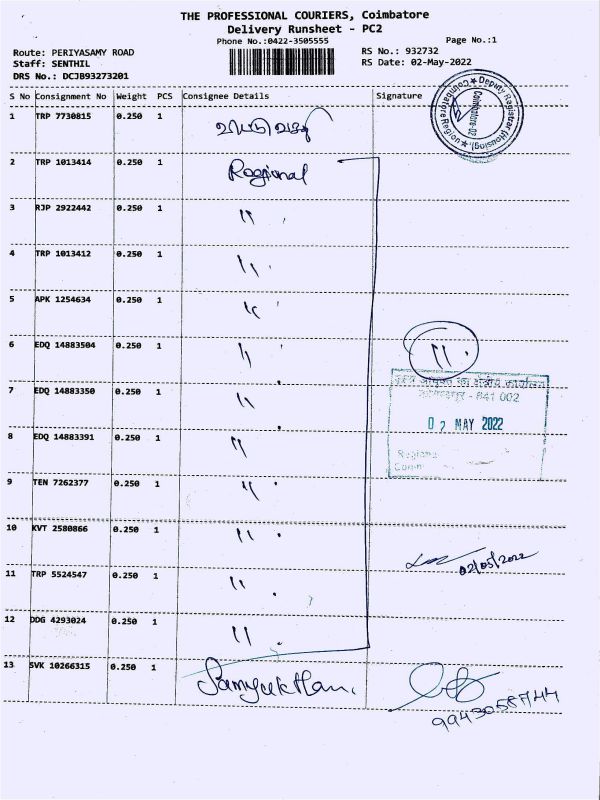 THE PROFESSIONAL COURIERS, Coimbatore
Delivery Runsheet - PC2
Phone No.:0422-3505555
Page No.:1
Route: PERIYASAMY ROAD
RS No.: 932732
Staff: SENTHIL
RS Date: 02-May-2022
DRS No.: DCJB93273201
S No Consignment No Weight PCS Consignee Details Signature
1 TRP 7730815 0.250 1
2 TRP 1013414 0.250 1 Regional
3 RJP 2922442 0.250 1 "
4 TRP 1013412 0.250 1 "
5 APK 1254634 0.250 1 "
6 EDQ 14883504 0.250 1 " 11.
7 EDQ 14883350 0.250 1 "
8 EDQ 14883391 0.250 1 "
9 TEN 7262377 0.250 1 "
10 KVT 2580866 0.250 1 "
11 TRP 5524547 0.250 1 "
12 DDG 4293024 0.250 1 "
13 SVK 10266315 0.250 1
Deputy Registrar (Housing)
Coimbatore Region
Coimbatore-02
641 002
02 MAY 2022
02/05/2022